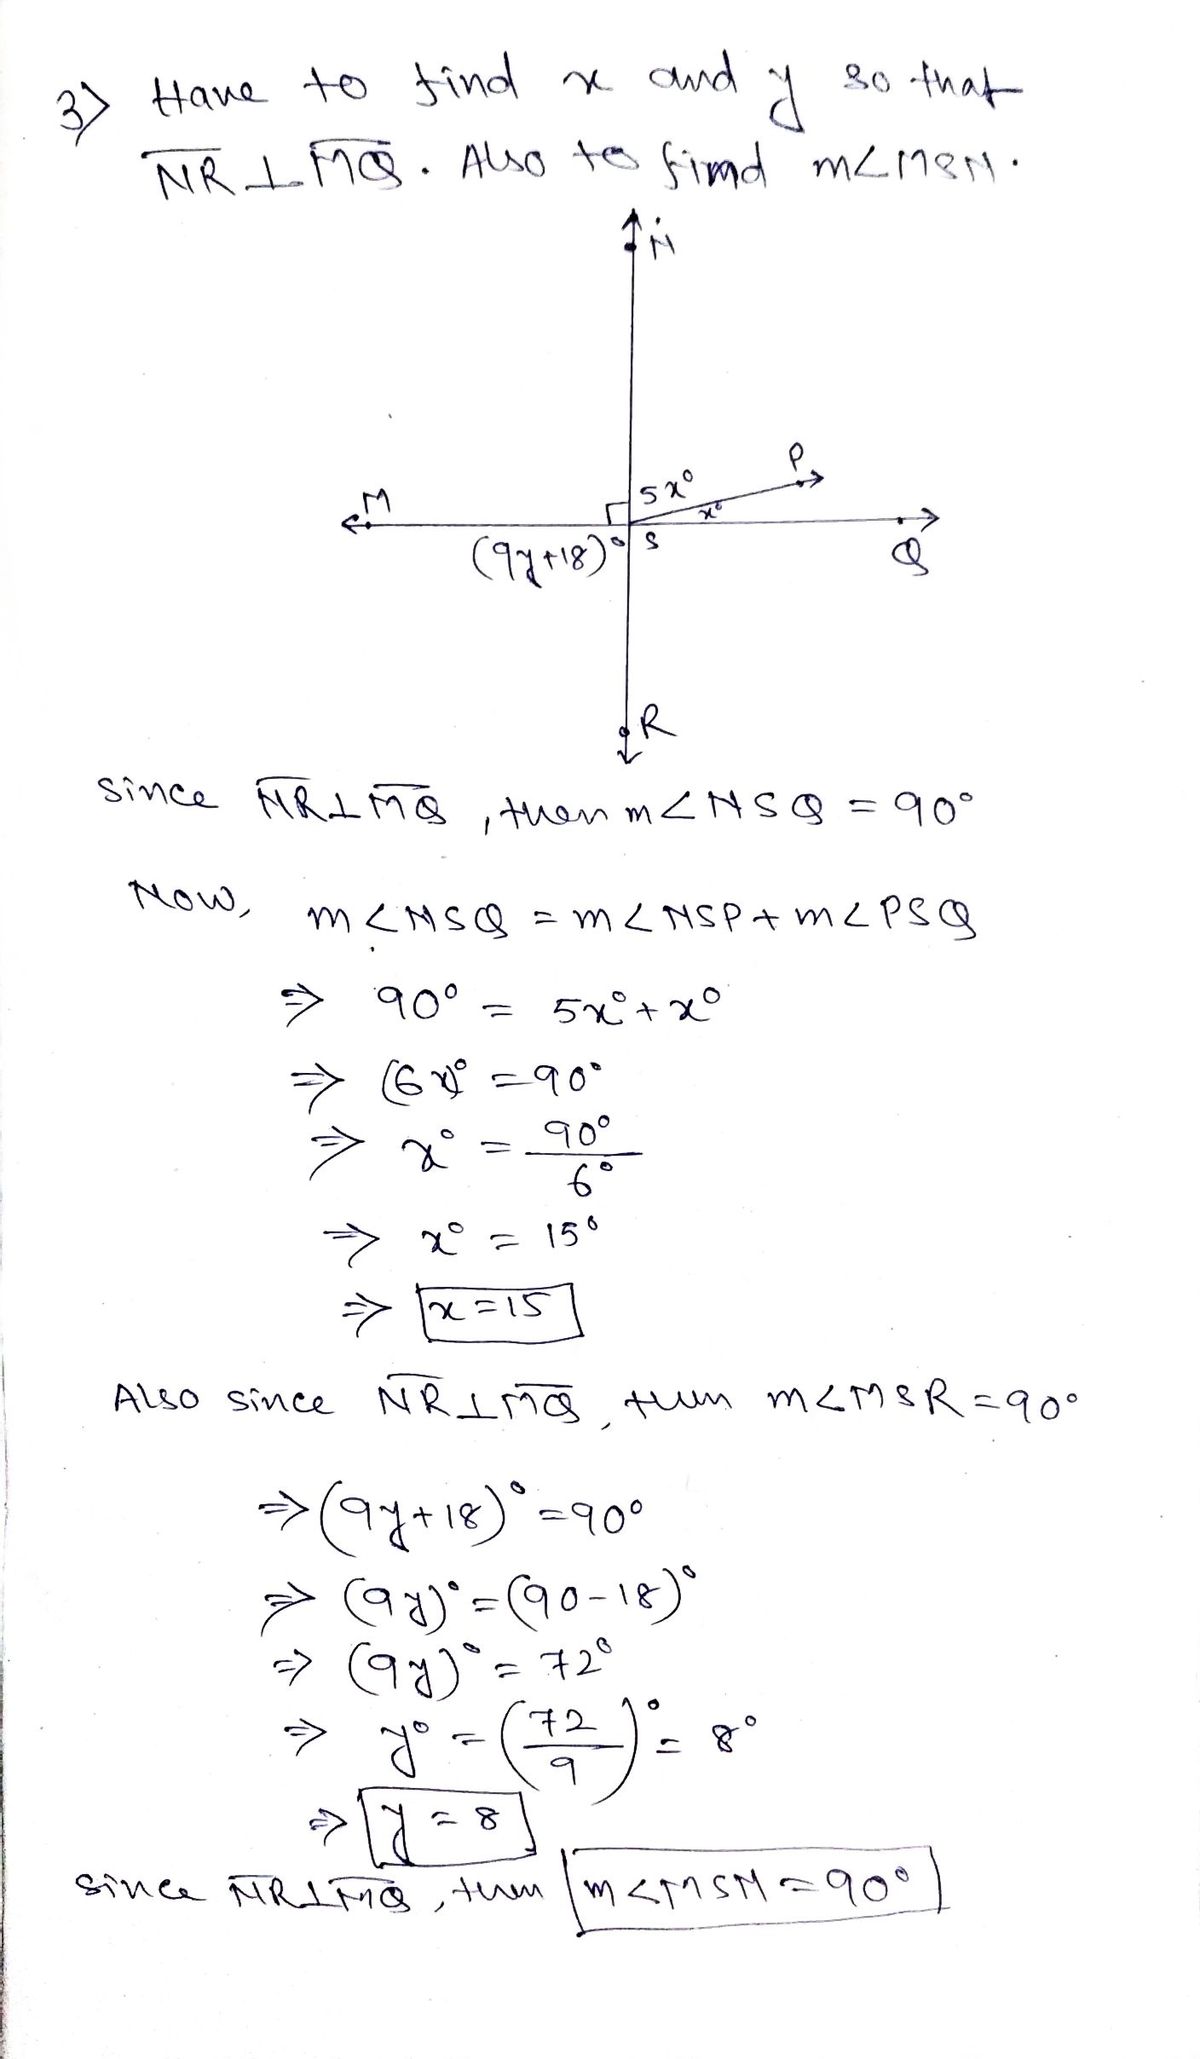 3) Have to find x and y so that
N̅R̅ ⊥ M̅Q̅. Also to find m∠MSN.
N
P
5x°
x°
M
(9y+18)°
S
Q
R
since N̅R̅ ⊥ M̅Q̅, then m∠NSQ = 90°
Now, m∠NSQ = m∠NSP + m∠PSQ
⇒ 90° = 5x° + x°
⇒ (6x)° = 90°
⇒ x° = 90°/6°
⇒ x° = 15°
⇒ x = 15
Also since N̅R̅ ⊥ M̅Q̅, then m∠MSR = 90°
⇒ (9y+18)° = 90°
⇒ (9y)° = (90-18)°
⇒ (9y)° = 72°
⇒ y° = (72/9)° = 8°
⇒ y = 8
since N̅R̅ ⊥ M̅Q̅, then m∠MSN = 90°